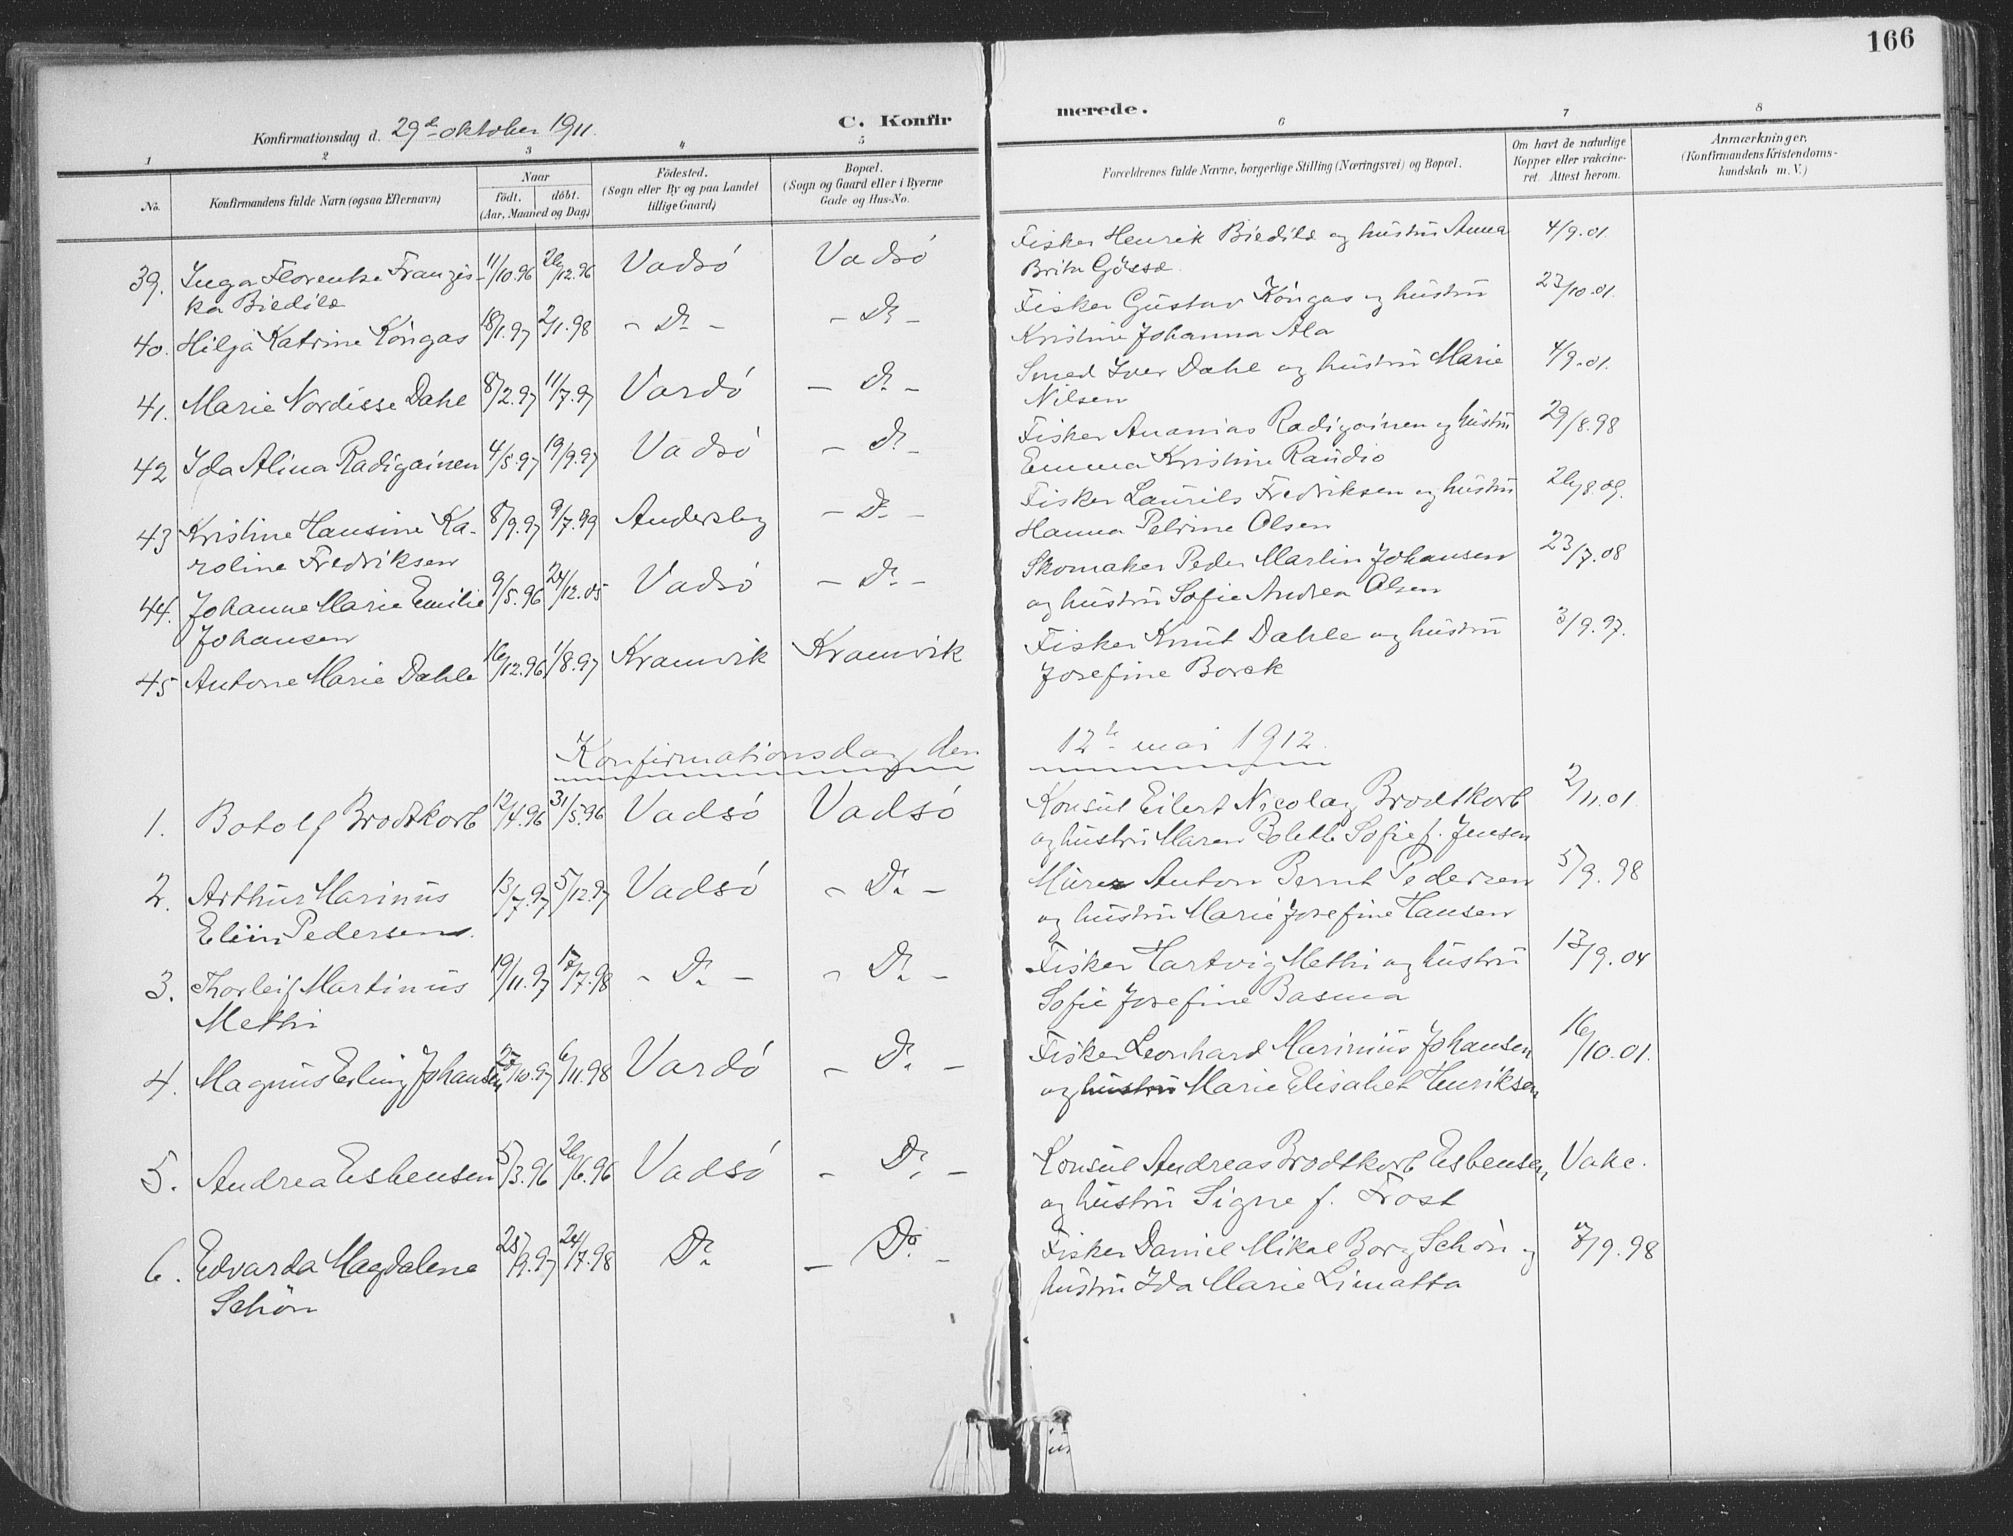 166
Konfirmationsdag d. 29de oktober 1911.
C. Konfirmerede.
1 2 3 4 5 6 7 8
No.
Konfirmandens fulde Navn (ogsaa Efternavn)
Naar
født. døbt.
(Aar, Maaned og Dag)
Fødested.
(Sogn eller By og paa Landet
tillige Gaard)
Bopæl.
(Sogn og Gaard eller i Byerne
Gade og Hus-No.
Forældrenes fulde Navne, borgerlige Stilling (Næringsvei) og Bopæl.
Om havt de naturlige
Kopper eller vakcine-
ret. Attest herom.
Anmærkninger,
(Konfirmandens Kristendoms-
kundskab m. V.)
39. Inga Florentse Franzis- 11/10.96 26/12.96 Vadsö Vadsö Fisker Henrik Biedilæ og hustru Anna 4/9.01.
ka Biedilæ Brita
40. Hilja Katrine Köngas 18/1.97 2/1.98 - Do - - Do - Fisker Gustav Köngas og hustru 23/10.01.
Kristine Johanna Ala
41. Marie Nordisse Dahl 8/2.97 11/7.97 Vardö - Do - Smed Iver Dahl og hustru Marie 4/9.01.
Nilsen
42 Ida Alina Radigainen 4/5.97 19/9.97 Vadsö - Do - Fisker Ananias Radigainen og hustru 29/8.98
Emma Kristine Raudio
43 Kristine Hansine Ka- 8/9.97 9/7.99 Andersby - Do - Fisker Laurits Fredriksen og hustru 26/8.09.
roline Fredriksen Hanna Petrine Olsen
44. Johanne Marie Emilie 9/5.96 24/12.05 Vadsö - Do - Skomaker Peder Martin Johansen 23/7.08
Johansen og hustru Sofie Andrea Olsen
45 Antone Marie Dahle 16/12.96 1/8.97 Kramvik Kramvik Fisker Knut Dahle og hustru 3/9.97.
Josefine Borch
Konfirmationsdag den 12te mai 1912.
1. Botolf Brodtkorb 12/4.96 31/5.96 Vadsö Vadsö Konsul Eilert Nicolay Brodtkorb 2/11.01
og hustru Maren Bolette Sofie f. Jensen
2. Arthur Marinus 13/7.97 5/12.97 Vadsö - Do - Murer Anton Bernt Pedersen 5/9.98
Eliin Pedersen. og hustru Marie Josefine Hansen
3. Thorleif Martinus 19/11.97 17/7.98 - Do - - Do - Fisker Hartvig Methi og hustru 13/9.04
Methi Sofie Josefine Basma
4. Magnus Erling Johansen 27/10.97 6/11.98 Vardö - Do - Fisker Leonhard Marinius Johansen 16/10.01.
og hustru Marie Elisabet Henriksen
5. Andrea Esbensen 5/3.96 26/6.96 Vadsö - Do - Konsul Andreas Brodtkorb Esbensen, Vakc.
og hustru Signe f. Frost
6. Edvarda Magdalene 25/9.97 24/7.98 Do - Do - Fisker Daniel Mikal Borg Schön og /9.98
Schön hustru Ida Marie Limatta